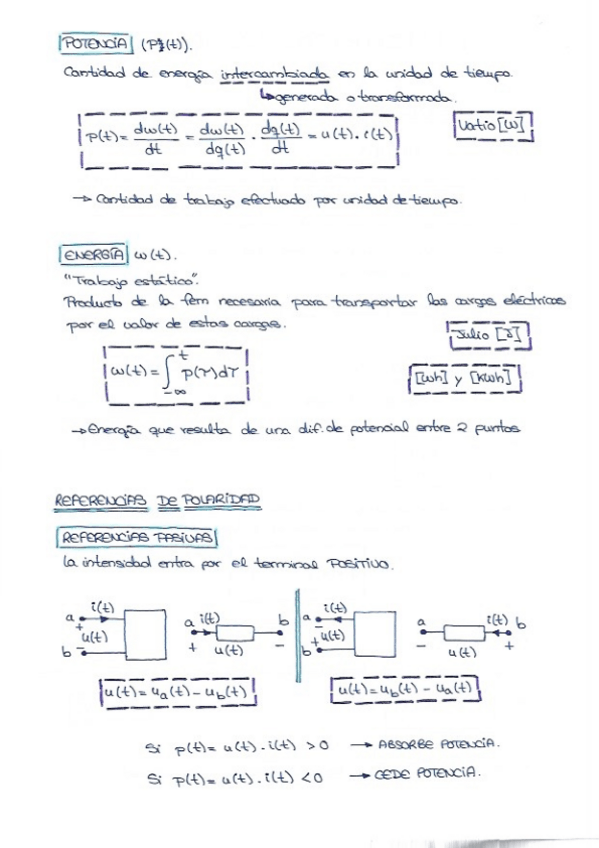 POTENCIA (P(t)).
Cantidad de energía intercambiada en la unidad de tiempo.
↳generada o transformada.
p(t) = dw(t)/dt = dw(t)/dq(t) · dq(t)/dt = u(t) · i(t)
Vatio [W]
→ Cantidad de trabajo efectuado por unidad de tiempo.
ENERGÍA w(t).
"Trabajo estático".
Producto de la fem necesaria para transportar las cargas eléctricas
por el valor de estas cargas.
Julio [J]
w(t) = ∫_{-∞}^{t} p(τ)dτ
[Wh] y [kWh]
→ Energía que resulta de una dif. de potencial entre 2 puntos
REFERENCIAS DE POLARIDAD
REFERENCIAS PASIVAS
La intensidad entra por el terminal POSITIVO.
a i(t) + u(t) − b
a i(t) b + u(t) −
a i(t) − u(t) + b
a i(t) b − u(t) +
u(t) = ua(t) − ub(t)
u(t) = ub(t) − ua(t)
Si p(t) = u(t) · i(t) > 0 → ABSORBE POTENCIA.
Si p(t) = u(t) · i(t) < 0 → CEDE POTENCIA.